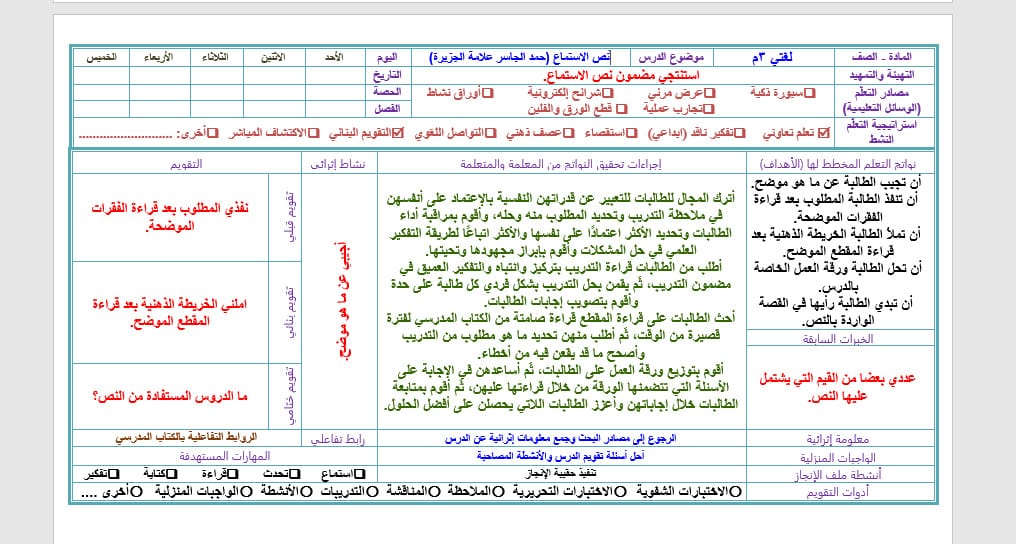 المادة – الصف لغتي ٣م موضوع الدرس نص الاستماع (حمد الجاسر علامة الجزيرة) اليوم الأحد الاثنين الثلاثاء الأربعاء الخميس
التهيئة والتمهيد استنتجي مضمون نص الاستماع. التاريخ
مصادر التعلم (الوسائل التعليمية) □سبورة ذكية □عرض مرئي □شرائح إلكترونية □أوراق نشاط الحصة
□تجارب عملية □ قطع الورق والفلين الفصل
استراتيجية التعلم النشط ☑ تعلم تعاوني □تفكير ناقد (ابداعي) □استقصاء □عصف ذهني □التواصل اللغوي ☑التقويم البنائي □الاكتشاف المباشر □أخرى: .........................
نواتج التعلم المخطط لها (الأهداف) إجراءات تحقيق النواتج من المعلمة والمتعلمة نشاط إثرائي التقويم
أن تجيب الطالبة عن ما هو موضح.
أن تنفذ الطالبة المطلوب بعد قراءة
الفقرات الموضحة.
أن تملأ الطالبة الخريطة الذهنية بعد
قراءة المقطع الموضح.
أن تحل الطالبة ورقة العمل الخاصة
بالدرس.
أن تبدي الطالبة رأيها في القصة
الواردة بالنص.
الخبرات السابقة
عددي بعضا من القيم التي يشتمل
عليها النص.
أترك المجال للطالبات للتعبير عن قدراتهن النفسية بالإعتماد على أنفسهن
في ملاحظة التدريب وتحديد المطلوب منه وحله، وأقوم بمراقبة أداء
الطالبات وتحديد الأكثر اعتمادًا على نفسها والأكثر اتباعًا لطريقة التفكير
العلمي في حل المشكلات وأقوم بإبراز مجهودها وتحيتها.
أطلب من الطالبات قراءة التدريب بتركيز وانتباه والتفكير العميق في
مضمون التدريب، ثم يقمن بحل التدريب بشكل فردي كل طالبة على حدة
وأقوم بتصويب إجابات الطالبات.
أحث الطالبات على قراءة المقطع قراءة صامتة من الكتاب المدرسي لفترة
قصيرة من الوقت، ثم أطلب منهن تحديد ما هو مطلوب من التدريب
وأصحح ما قد يقعن فيه من أخطاء.
أقوم بتوزيع ورقة العمل على الطالبات، ثم أساعدهن في الإجابة على
الأسئلة التي تتضمنها الورقة من خلال قراءتها عليهن، ثم أقوم بمتابعة
الطالبات خلال إجاباتهن وأعزز الطالبات اللاتي يحصلن على أفضل الحلول.
أجيبي عن ما هو موضح.
تقويم قبلي
نفذي المطلوب بعد قراءة الفقرات
الموضحة.
تقويم بنائي
املئي الخريطة الذهنية بعد قراءة
المقطع الموضح.
تقويم ختامي
ما الدروس المستفادة من النص؟
معلومة إثرائية الرجوع إلى مصادر البحث وجمع معلومات إثرائية عن الدرس رابط تفاعلي الروابط التفاعلية بالكتاب المدرسي
الواجبات المنزلية أحل أسئلة تقويم الدرس والأنشطة المصاحبة المهارات المستهدفة
أنشطة ملف الإنجاز تنفيذ حقيبة الإنجاز □استماع □تحدث □قراءة □كتابة □تفكير
أدوات التقويم ○الاختبارات الشفوية ○الاختبارات التحريرية ○الملاحظة ○المناقشة ○التدريبات ○الأنشطة ○الواجبات المنزلية ○أخرى ....